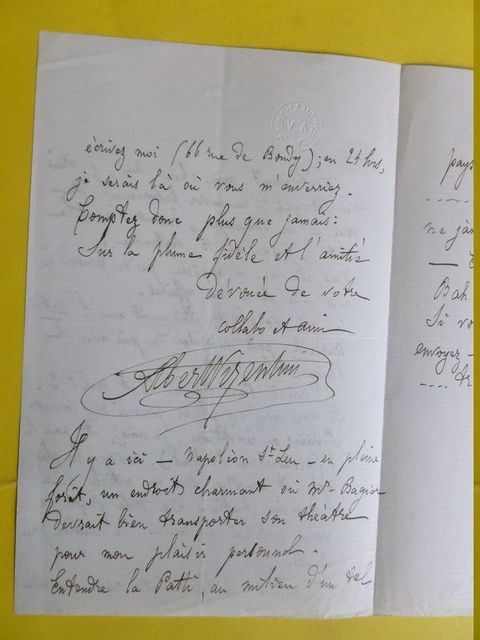 écrivez moi (66 rue de Bondy) ; en 24 hrs,
je serais là où vous m'enverriez.
Comptez donc plus que jamais :
Sur la plume fidèle et l'amitié
Dévouée de votre
collabo et ami
Albert Vizentini
Il y a ici — Napoléon St Leu — en pleine
forêt, un endroit charmant où Mr Bagier
devrait bien transporter son théâtre
pour mon plaisir personnel.
Entendre la Patti, au milieu d'un tel
pays
-----
ne jam
—
Bah
Si vo
envoyez —
----
V A